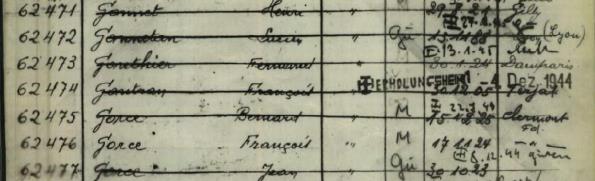 62471 Gonnet Henri " 29.8.24 Gilly
62472 Gonnetan Lucien " Gü 15.11.88 (Lyon)
62473 Gonthier Fernand " 13.1.45 30.1.24 Damparis
62474 Gontran François " ERHOLUNGSHEIM -4. Dez. 1944 30.12.05
62475 Gorce Bernard " M 22.3.45 15.12.25 Clermont Fd.
62476 Gorce François " M 17.11.24 " "
62477 Gorce Jean " Gü 8.12.44 30.10.23